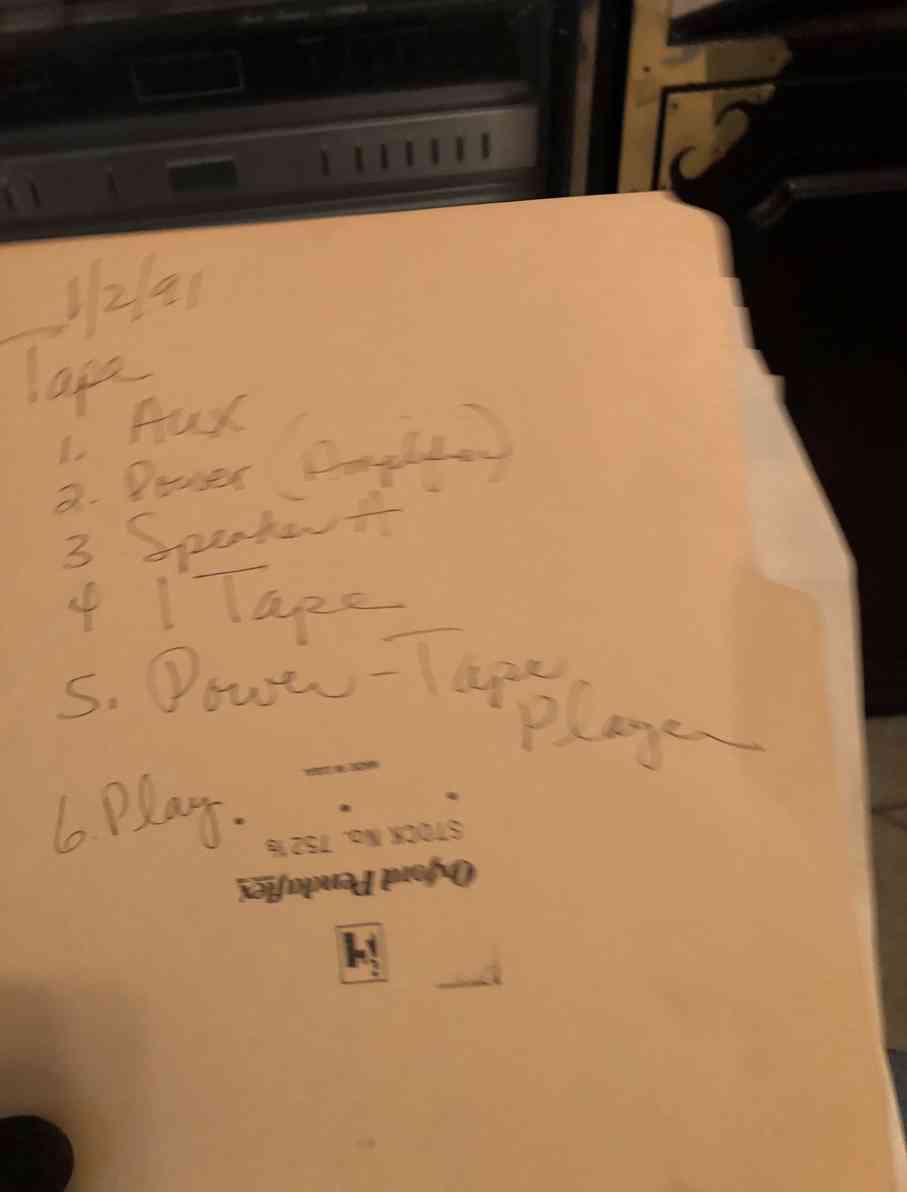 1/2/91
Tape
1. Aux
2. Power (Amplifier)
3 Speaker A
4 1 Tape
5. Power - Tape
Player
6. Play.
MADE IN U.S.A.
STOCK No. 752 1/3
Oxford Pendaflex